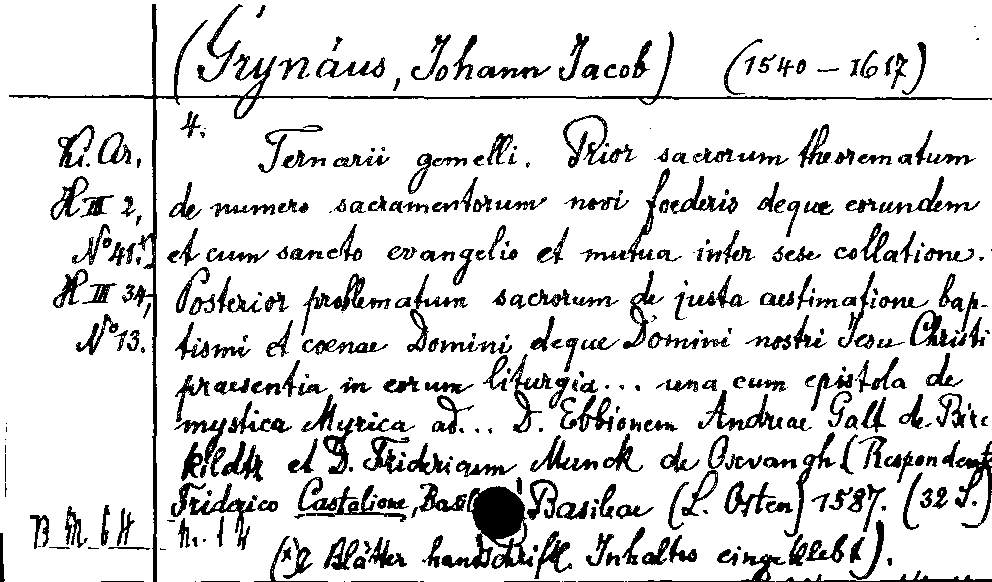 (Grynäus, Johann Jacob) (1540 – 1617)
4.
Ki. Ar. Ternarii gemelli. Prior sacrorum theorematum
H III 2, de numero sacramentorum novi foederis deque eorundem
N° 41.*) et cum sancto evangelio et mutua inter sese collatione.
H III 34, Posterior problematum sacrorum de justa aestimatione bap-
N° 13. tismi et coenae Domini deque Domini nostri Jesu Christi
praesentia in eorum liturgia... una cum epistola de
mystica Myrica ad... D. Ebbionem Andreae Galt de Birc
kildtz et D. Fridericum Munck de Osevangh (Respondente
Friderico Castalione, Basil Basileae (L. Osten) 1587. (32 S.)
B M 6 H n. 1
(*) Blätter handschriftl. Inhaltes eingeklebt).